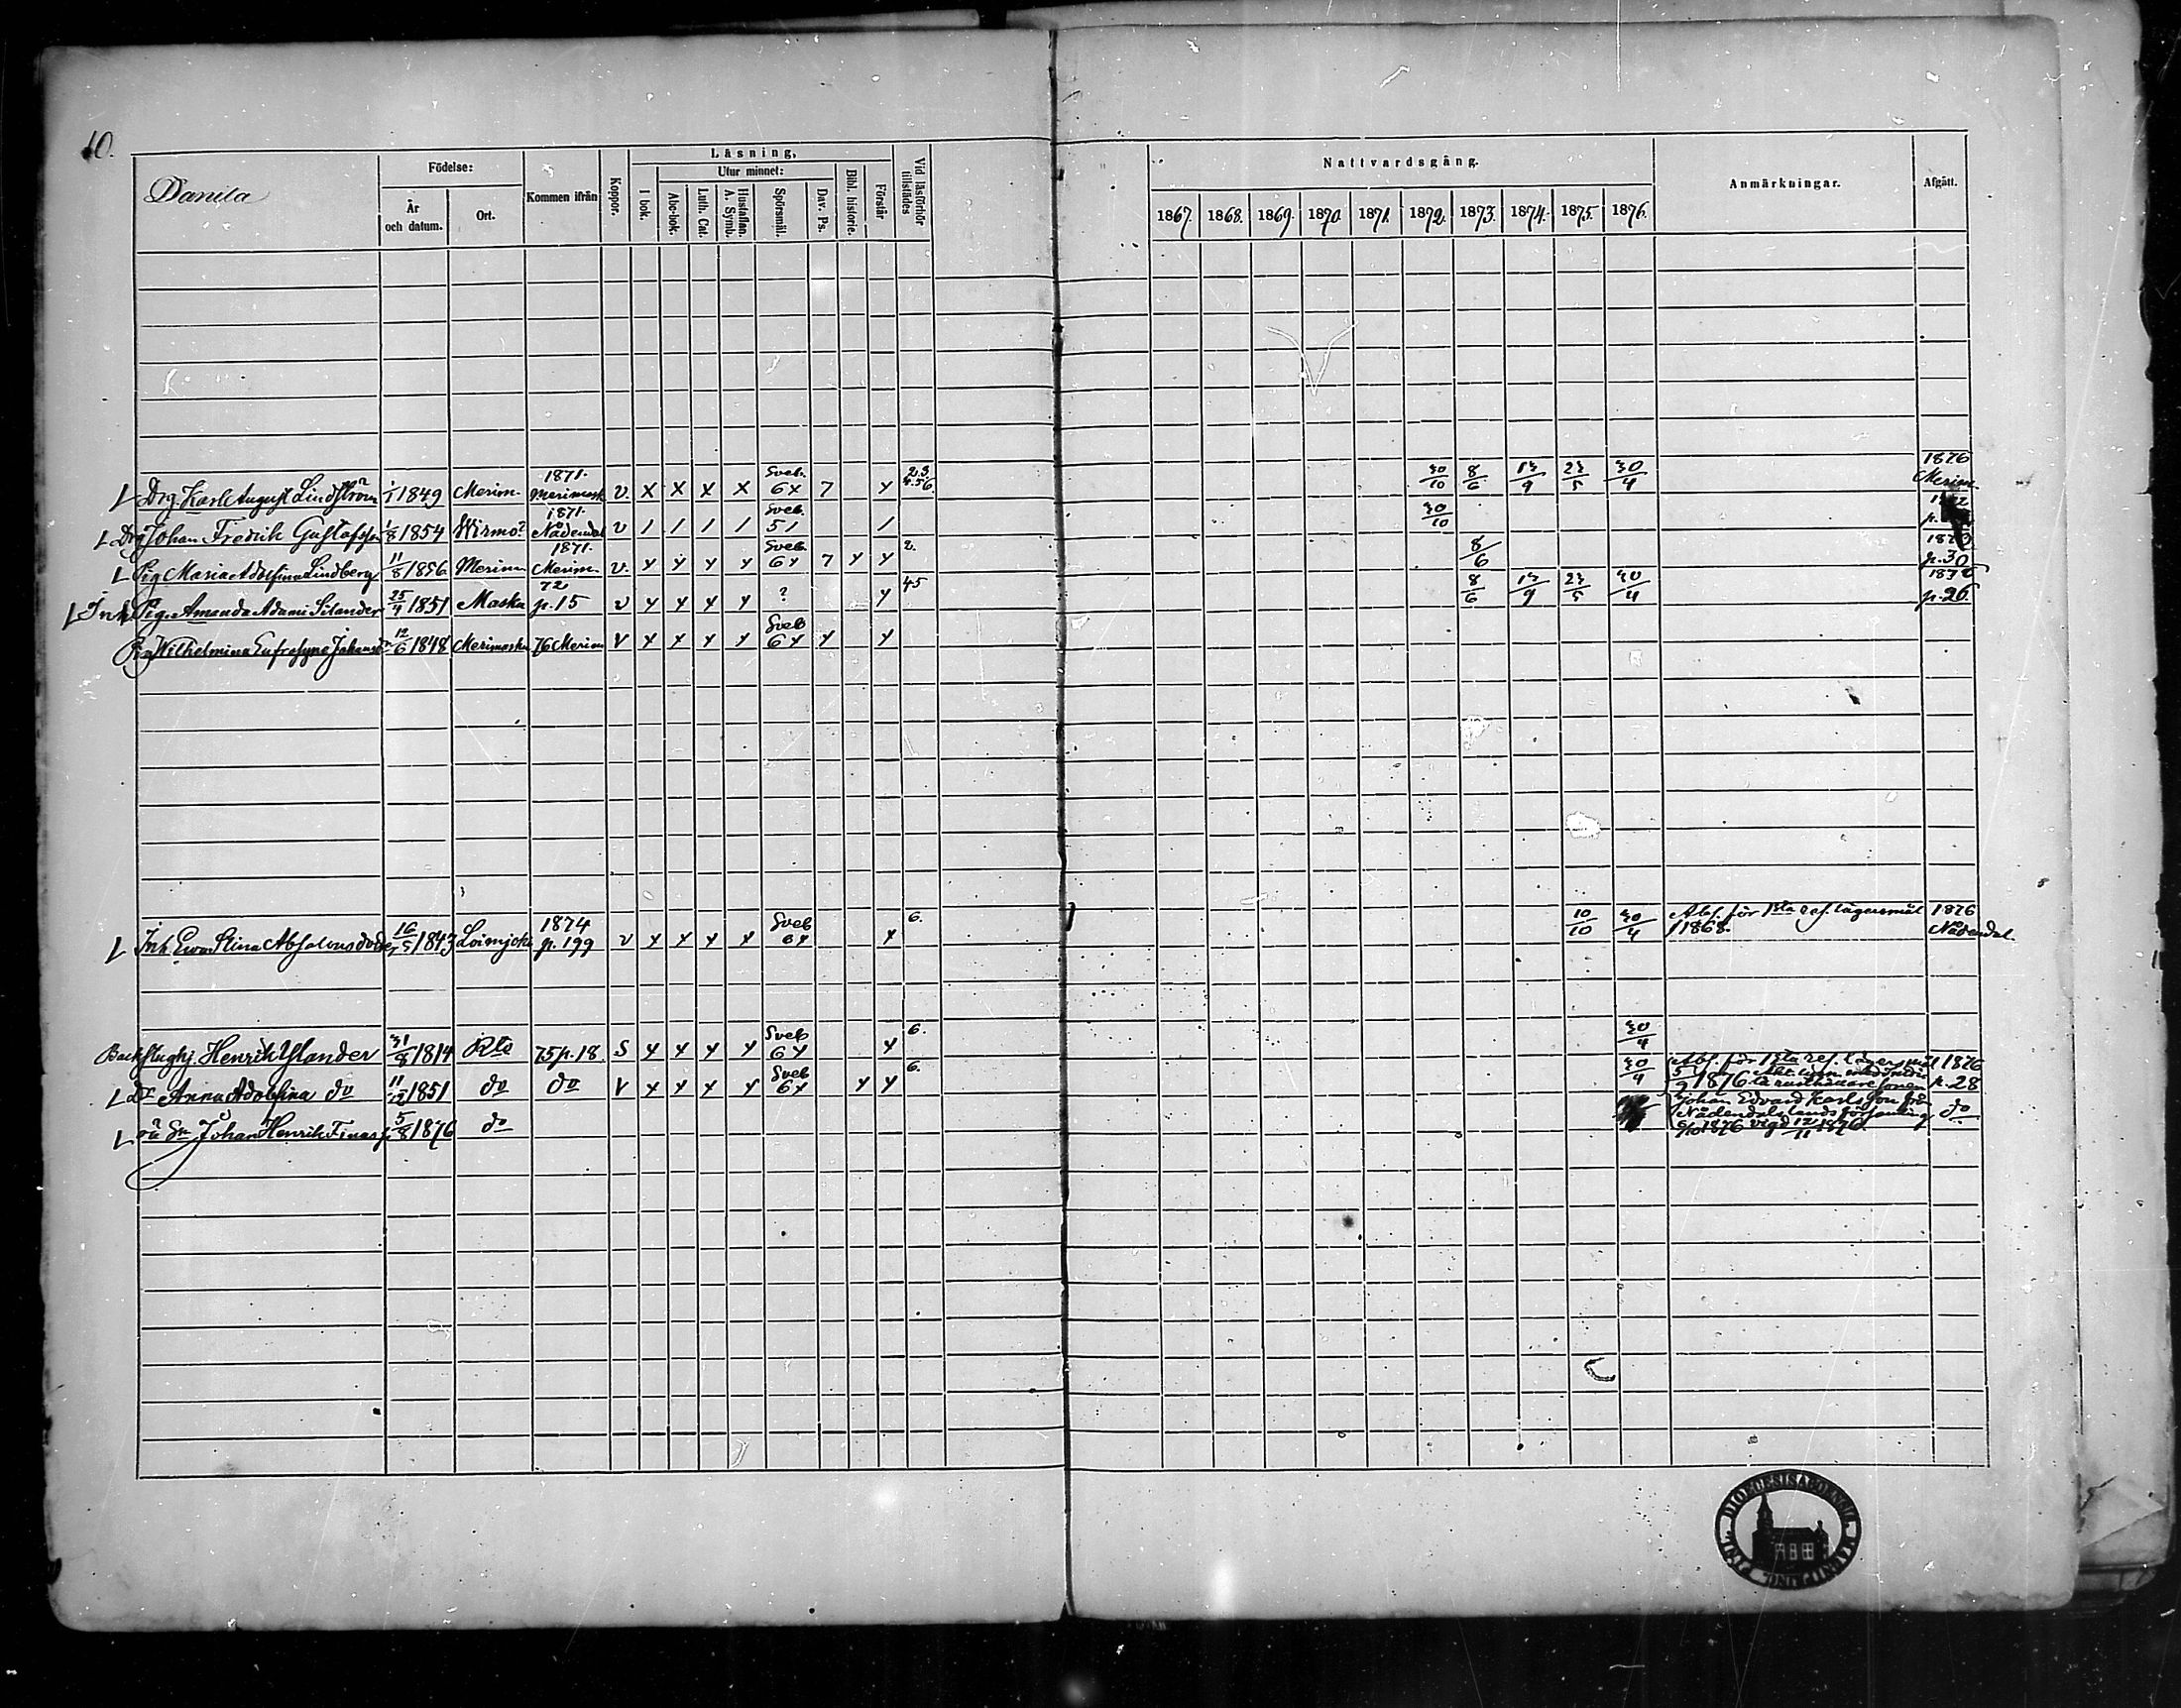 10.
Danila
Födelse:
År och datum.
Ort.
Kommen ifrån
Koppor.
Läsning,
I bok.
Utur minnet:
Abc-bok.
Luth. Cat.
Hustaflan. A. Symb.
Spörsmål.
Dav. Ps.
Bibl. historie.
Förstår
Vid läsförhör tillstädes
Nattvardsgång.
1867. 1868. 1869. 1870. 1871. 1872. 1873. 1874. 1875. 1876.
Anmärkningar.
Afgått.
L Drg. Karl August Lindström 1/1 1849 Merim. 1871. Merimask v. X X X X Sveb. 6x 7 x 2.3 4.56. 30/10 8/6 13/9 23/5 30/4 1876 Merim.
L Drg Johan Fredrik Gustafsson 1/8 1854 Wirmo 1871. Nådendal v / / / / Sveb. 5/ / 30/10
L Pig Maria Adolfina Lindberg 11/8 1856 Merim 1871. Merim. v. x x x x Sveb. 6x 7 x x 2. 8/6 p. 30
L Inh Pig. Amanda Adami Silander 25/4 1851 Masku 72 p. 15 v x x x x ? x 45 8/6 13/9 23/5 30/4 p. 26.
Pig Wilhelmina Eufrosyne Johansdr 12/6 1848 Merimasku 76 Merim v x x x x Sveb 6x x x
L Inh. Ewa Stina Absalonsdotter 16/5 1843 Loimjoki 1874 p. 199 v x x x x Sveb 6x x 6. 10/10 30/4 Abs. för 1sta res. lägersmål 1876
1868. Nådendal.
Backstughj. Henrik Ylander 31/8 1814 Rto 75 p. 18 S x x x x Sveb 6x x 6. 30/4
L Dr Anna Adolfina do 11/12 1851 do do v x x x x Sveb 6x x x 6. 30/4 Abs. för 1sta res. lägersmål 1876
5/9 1876 rusthållaresonen p. 28
L Sn Johan Henrik 5/8 1876 do Johan Edvard Karlsson från
Nådendals landsförsamling do
1876 vigd 12/11 1876.
DIOECESIS ABOENSIS MAGNI DUC. FINL.